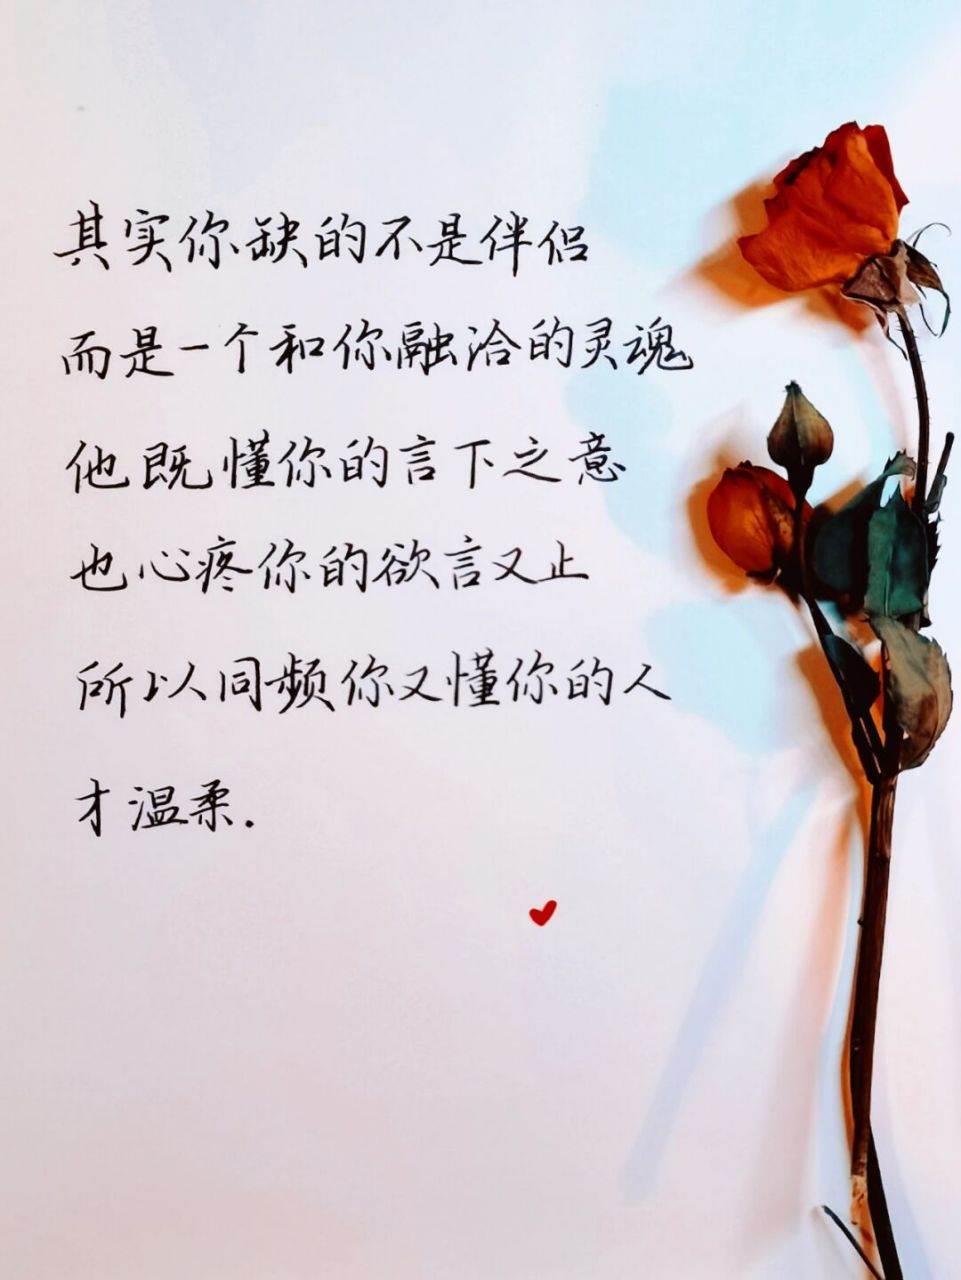 其实你缺的不是伴侣
而是一个和你融洽的灵魂
他既懂你的言下之意
也心疼你的欲言又止
所以同频你又懂你的人
才温柔.